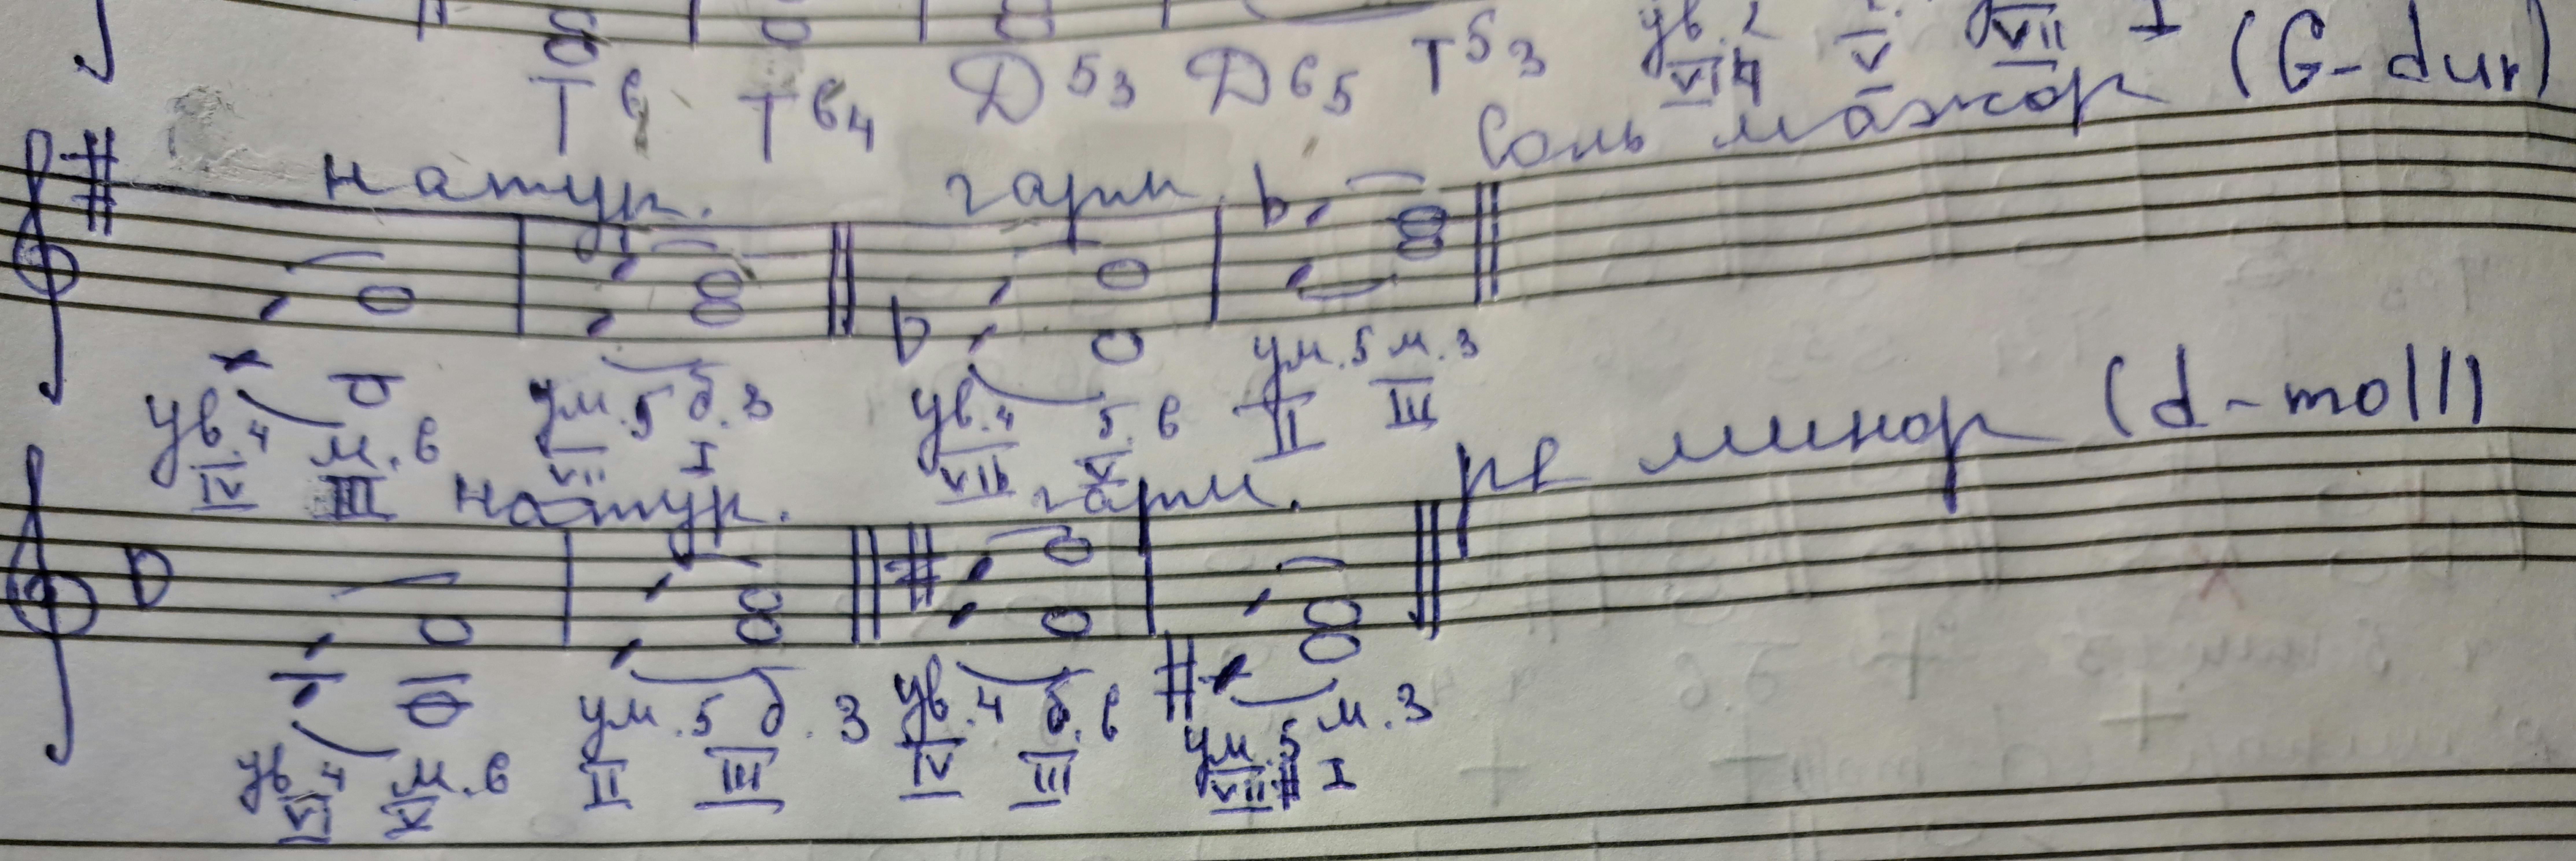 Т6 Т64 Д53 Д65 Т53 ув.2 VI V VII I (G-dur)
натур. гарм. Соль мажор
ув.4 м.6 ум.5 б.3 ув.4 б.6 ум.5 м.3
IV III VII I VIb V II III
натур. гарм. ре минор (d-moll)
ув.4 м.6 ум.5 б.3 ув.4 б.6 ум.5 м.3
VI V II III IV III VII# I